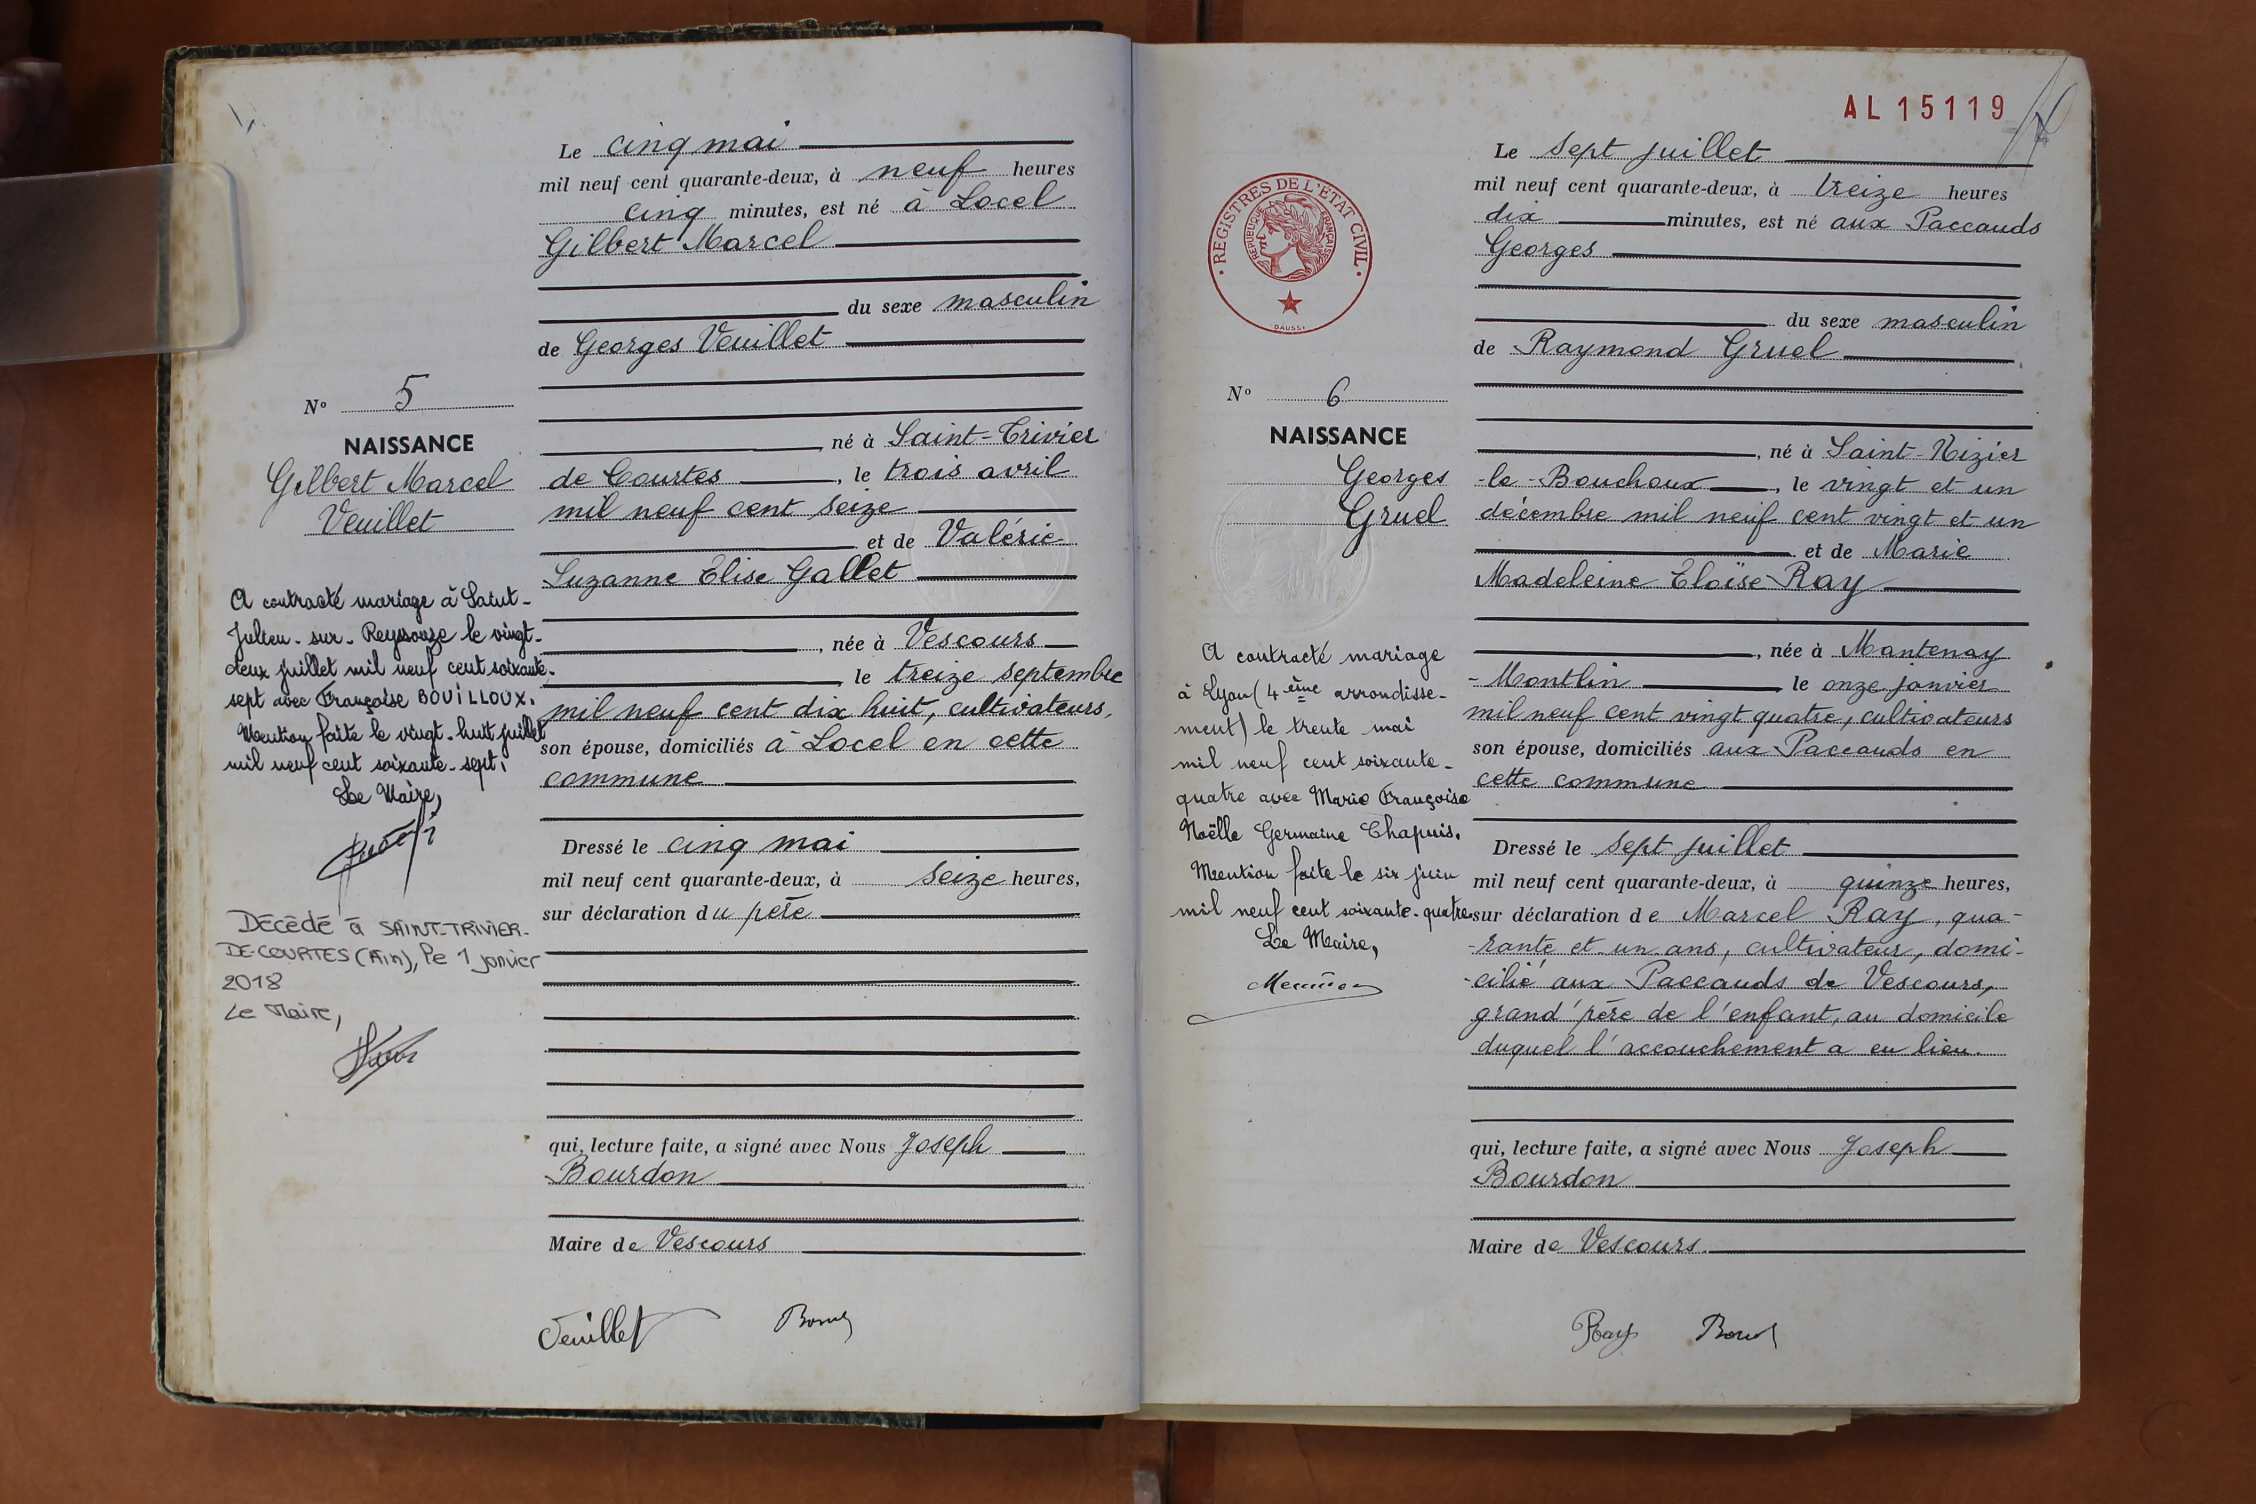 Le cinq mai
mil neuf cent quarante-deux, à neuf heures
cinq minutes, est né à Locel
Gilbert Marcel
du sexe masculin
de Georges Veuillet
N° 5
né à Saint-Trivier
NAISSANCE
Gilbert Marcel
Veuillet
de Courtes, le trois avril
mil neuf cent seize
et de Valérie
Suzanne Elise Gallet
née à Vescours
le treize septembre
mil neuf cent dix huit, cultivateurs,
son épouse, domiciliés à Locel en cette
commune
A contracté mariage à Saint-
Julien-sur-Reyssouze le vingt-
deux juillet mil neuf cent soixante-
sept avec Françoise BOUILLOUX.
Mention faite le vingt-huit juillet
mil neuf cent soixante-sept.
Le Maire,
Dressé le cinq mai
mil neuf cent quarante-deux, à seize heures,
sur déclaration du père
Décédé à SAINT-TRIVIER-
DE-COURTES (Ain), le 1 janvier
2018
Le Maire,
qui, lecture faite, a signé avec Nous Joseph
Bourdon
Maire de Vescours
Veuillet
AL 15119
Le sept juillet
mil neuf cent quarante-deux, à treize heures
dix minutes, est né aux Paccauds
Georges
du sexe masculin
de Raymond Gruel
REGISTRES DE L'ÉTAT CIVIL
RÉPUBLIQUE FRANÇAISE
DAUSSY
N° 6
NAISSANCE
Georges
Gruel
né à Saint-Nizier
-le-Bouchoux, le vingt et un
décembre mil neuf cent vingt et un
et de Marie
Madeleine Eloïse Ray
, née à Mantenay
-Montlin le onze janvier
mil neuf cent vingt quatre, cultivateurs
son épouse, domiciliés aux Paccauds en
cette commune
A contracté mariage
à Lyon (4ème arrondisse-
ment) le trente mai
mil neuf cent soixante-
quatre avec Marie Françoise
Noëlle Germaine Chapuis.
Mention faite le six juin
mil neuf cent soixante-quatre
Le Maire,
Dressé le sept juillet
mil neuf cent quarante-deux, à quinze heures,
sur déclaration de Marcel Ray, qua-
-rante et un ans, cultivateur, domi-
-cilié aux Paccauds de Vescours,
grand'père de l'enfant, au domicile
duquel l'accouchement a eu lieu.
qui, lecture faite, a signé avec Nous Joseph
Bourdon
Maire de Vescours.
Ray